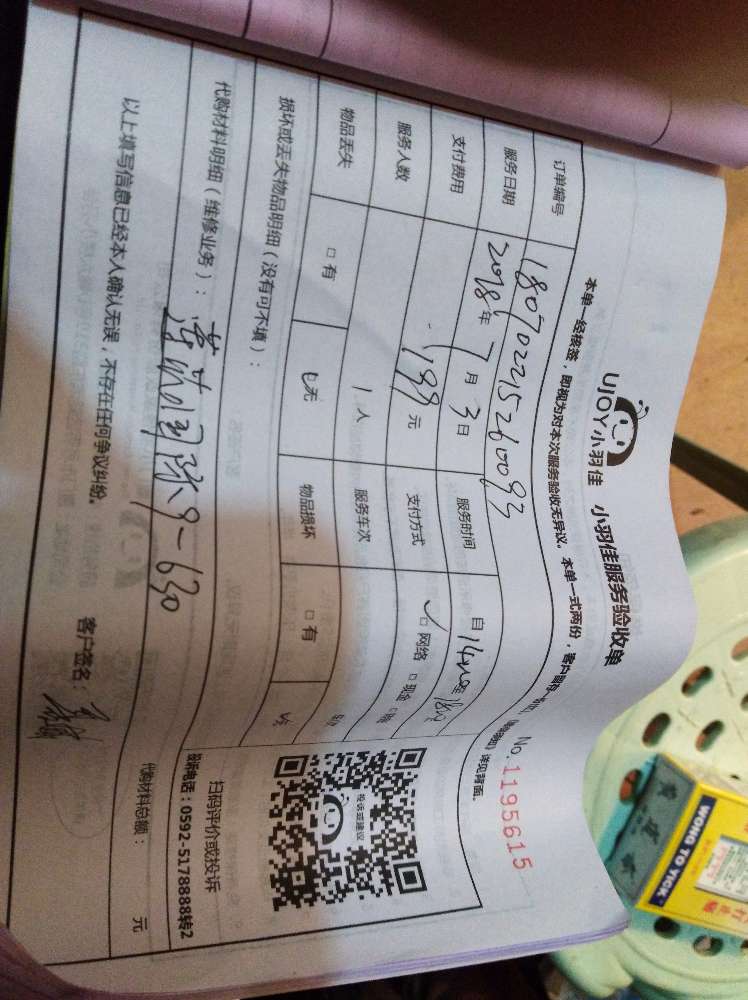 UJOY小羽佳 小羽佳服务验收单
本单一经核签，即视为对本次服务验收无异议。本单一式两份，客户留存一份
详见背面。
No. 1195615
订单编号 180702215260093
服务日期 2018年 7月 3日 服务时间 自14
支付费用 199 元 支付方式 网络 现金
服务人数 1人 服务车次
物品丢失 有 无 物品损坏 有
损坏或丢失物品明细（没有可不填）：
代购材料明细（维修业务）：
9-630
代购材料总额： 元
以上填写信息已经本人确认无误，不存在任何争议纠纷。
客户签名：
投诉或建议
扫码评价或投诉
投诉电话：0592-5178888转2
WONG TO TICK